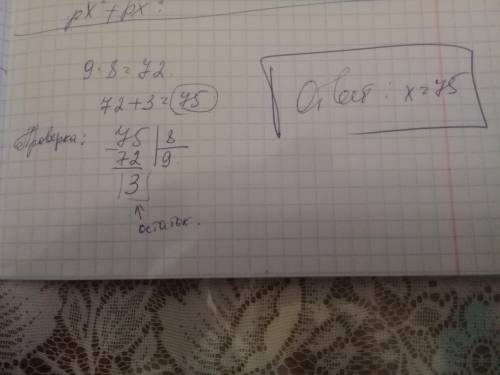 px² + px²:
9·8=72
72+3=75
Ответ: x=75
Проверка:
75 8
72 9
3
остаток.